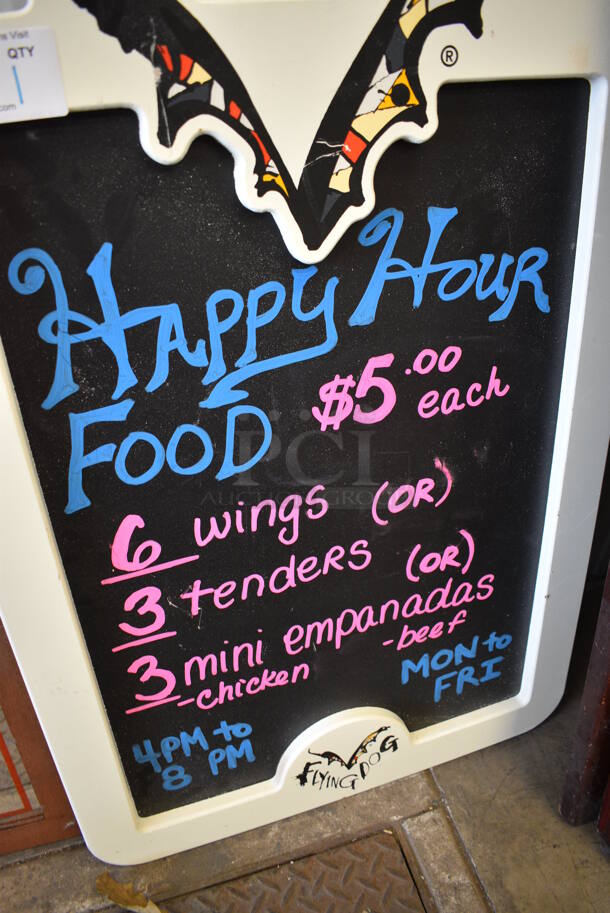 ns Visit
QTY
1
com
®
Happy Hour
Food $5.00
each
6 wings (OR)
3 tenders (OR)
3 mini empanadas
-chicken -beef
MON to
FRI
4PM to
8 PM
FLYING DOG
RCI
AUCTION GROUP